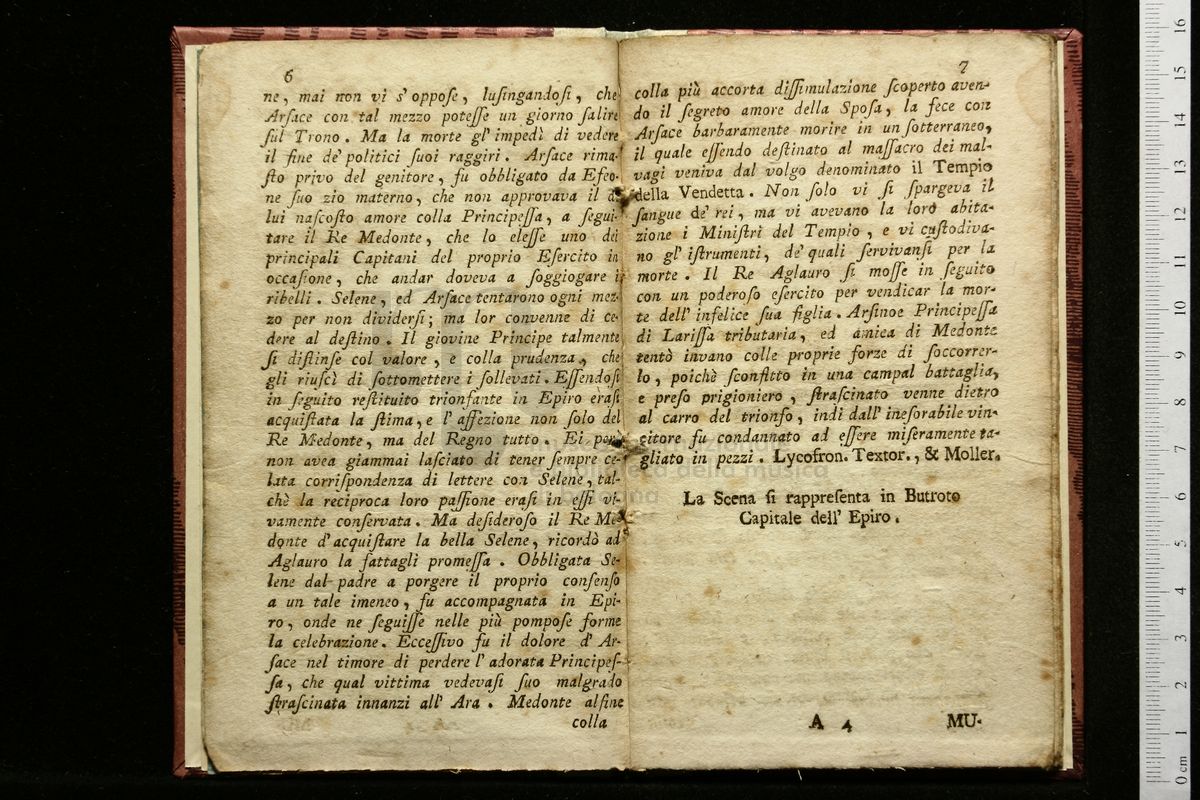 6
ne, mai non vi s'oppose, lusingandosi, che
Arsace con tal mezzo potesse un giorno salire
sul Trono. Ma la morte gl'impedì di vedere
il fine de' politici suoi raggiri. Arsace rima-
sto privo del genitore, fu obbligato da Efeo-
ne suo zio materno, che non approvava il di
lui nascosto amore colla Principessa, a segui-
tare il Re Medonte, che lo elesse uno dei
principali Capitani del proprio Esercito in
occasione, che andar doveva a soggiogare i
ribelli. Selene, ed Arsace tentarono ogni mez-
zo per non dividersi; ma lor convenne di ce-
dere al destino. Il giovine Principe talmente
si distinse col valore, e colla prudenza, che
gli riuscì di sottomettere i sollevati. Essendosi
in seguito restituito trionfante in Epiro erasi
acquistata la stima, e l'affezione non solo del
Re Medonte, ma del Regno tutto. Ei però
non avea giammai lasciato di tener sempre ce-
lata corrispondenza di lettere con Selene, tal-
chè la reciproca loro passione erasi in essi vi-
vamente conservata. Ma desideroso il Re Me-
donte d'acquistare la bella Selene, ricordò ad
Aglauro la fattagli promessa. Obbligata Se-
lene dal padre a porgere il proprio consenso
a un tale imeneo, fu accompagnata in Epi-
ro, onde ne seguisse nelle più pompose forme
la celebrazione. Eccessivo fu il dolore d'Ar-
sace nel timore di perdere l'adorata Principes-
sa, che qual vittima vedevasi suo malgrado
strascinata innanzi all'Ara. Medonte alfine
colla
7
colla più accorta dissimulazione scoperto aven-
do il segreto amore della Sposa, la fece con
Arsace barbaramente morire in un sotterraneo,
il quale essendo destinato al massacro dei mal-
vagi veniva dal volgo denominato il Tempio
della Vendetta. Non solo vi si spargeva il
sangue de' rei, ma vi avevano la loro abita-
zione i Ministri del Tempio, e vi custodiva-
no gl'istrumenti, de' quali servivansi per la
morte. Il Re Aglauro si mosse in seguito
con un poderoso esercito per vendicar la mor-
te dell'infelice sua figlia. Arsinoe Principessa
di Larissa tributaria, ed amica di Medonte
tentò invano colle proprie forze di soccorrer-
lo, poichè sconfitto in una campal battaglia,
e preso prigioniero, strascinato venne dietro
al carro del trionfo, indi dall'inesorabile vin-
citore fu condannato ad essere miseramente ta-
gliato in pezzi. Lycofron. Textor., & Moller.
La Scena si rappresenta in Butroto
Capitale dell'Epiro.
A 4
MU-